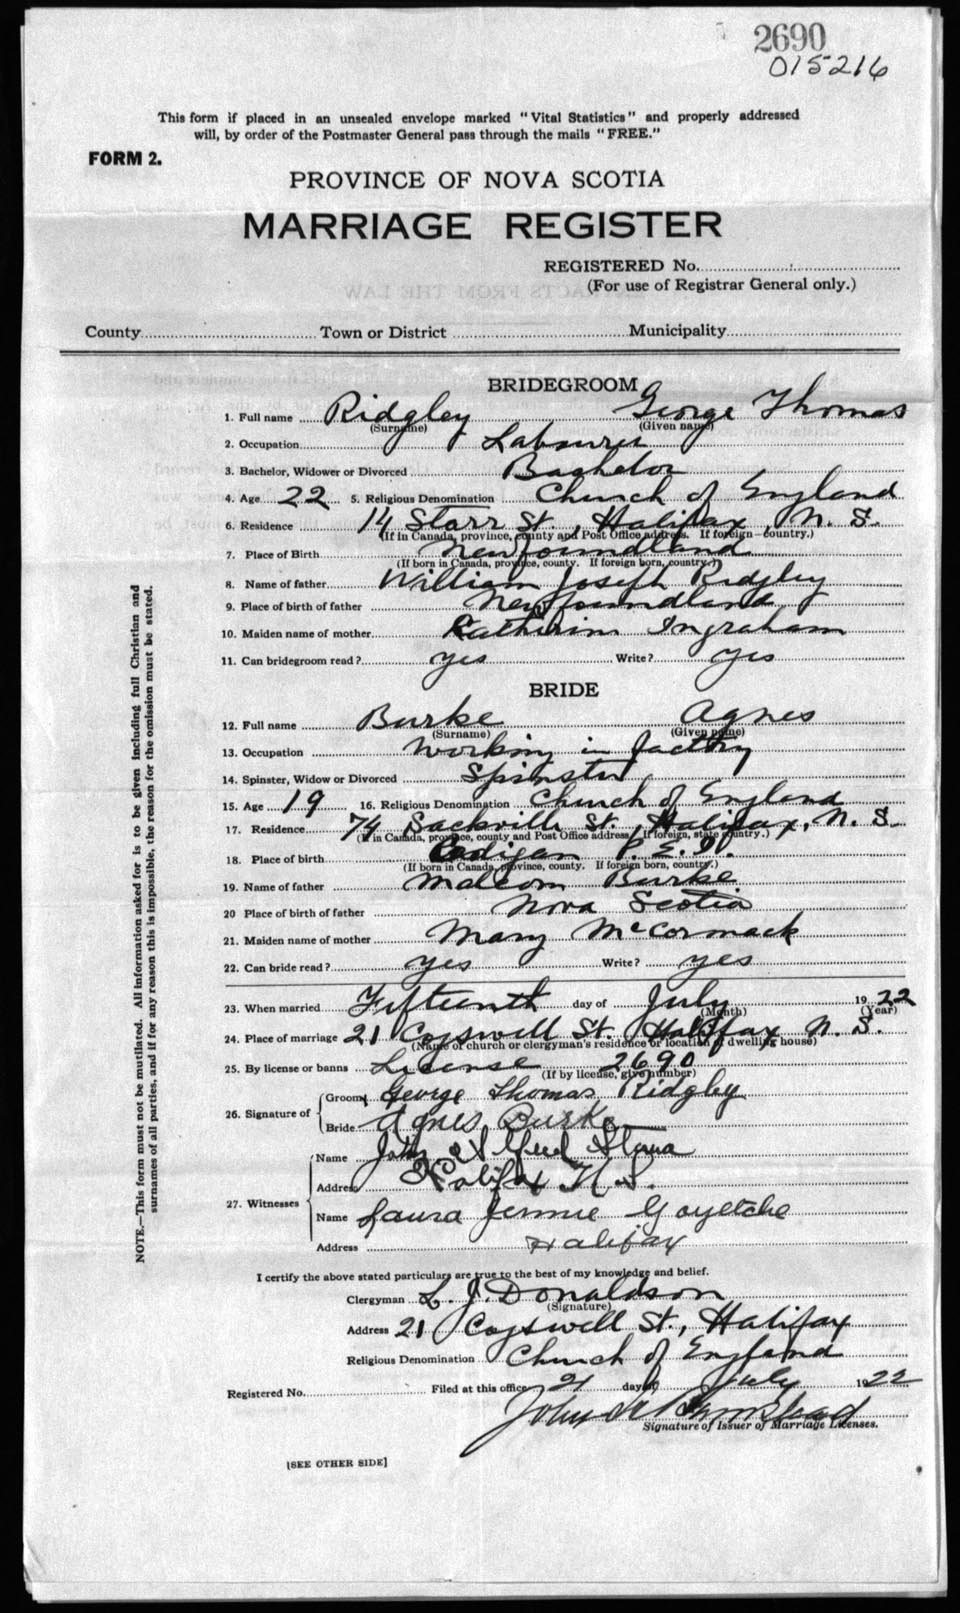 2690
015216
This form if placed in an unsealed envelope marked "Vital Statistics" and properly addressed
will, by order of the Postmaster General pass through the mails "FREE."
FORM 2.
PROVINCE OF NOVA SCOTIA
MARRIAGE REGISTER
REGISTERED No.
(For use of Registrar General only.)
County Town or District Municipality
BRIDEGROOM
1. Full name Ridgley George Thomas
(Surname) (Given name)
2. Occupation Labourer
3. Bachelor, Widower or Divorced Bachelor
4. Age 22 5. Religious Denomination Church of England
6. Residence 14 Starr St, Halifax, N. S.
(If in Canada, province, county and Post Office address. If foreign country.)
7. Place of Birth Newfoundland
(If born in Canada, province, county. If foreign born, country.)
8. Name of father William Joseph Ridgley
9. Place of birth of father Newfoundland
10. Maiden name of mother Catherine Ingraham
11. Can bridegroom read? yes Write? yes
BRIDE
12. Full name Burke Agnes
(Surname) (Given name)
13. Occupation Working in factory
14. Spinster, Widow or Divorced Spinster
15. Age 19 16. Religious Denomination Church of England
17. Residence 74 Sackville St., Halifax, N. S.
(If in Canada, province, county and Post Office address. If foreign, state country.)
18. Place of birth Cadigan P. E. I.
(If born in Canada, province, county. If foreign born, country.)
19. Name of father Malcom Burke
20 Place of birth of father Nova Scotia
21. Maiden name of mother Mary McCormack
22. Can bride read? yes Write? yes
23. When married Fifteenth day of July 1922
(Month) (Year)
24. Place of marriage 21 Cogswell St. Halifax N. S.
(Name of church or clergyman's residence or location of dwelling house)
25. By license or banns License 2690
(If by license, give number)
26. Signature of
Groom George Thomas Ridgley
Bride Agnes Burke
27. Witnesses
Name Alfred
Address Halifax N. S.
Name Laura Jennie Goyetche
Address Halifax
I certify the above stated particulars are true to the best of my knowledge and belief.
Clergyman L. J. Donaldson
(Signature)
Address 21 Cogswell St., Halifax
Religious Denomination Church of England
Registered No. Filed at this office 21 day of July 1922
John
Signature of Issuer of Marriage Licenses.
[SEE OTHER SIDE]
NOTE.—This form must not be mutilated. All information asked for is to be given including full Christian and
surnames of all parties, and if for any reason this is impossible, the reason for the omission must be stated.